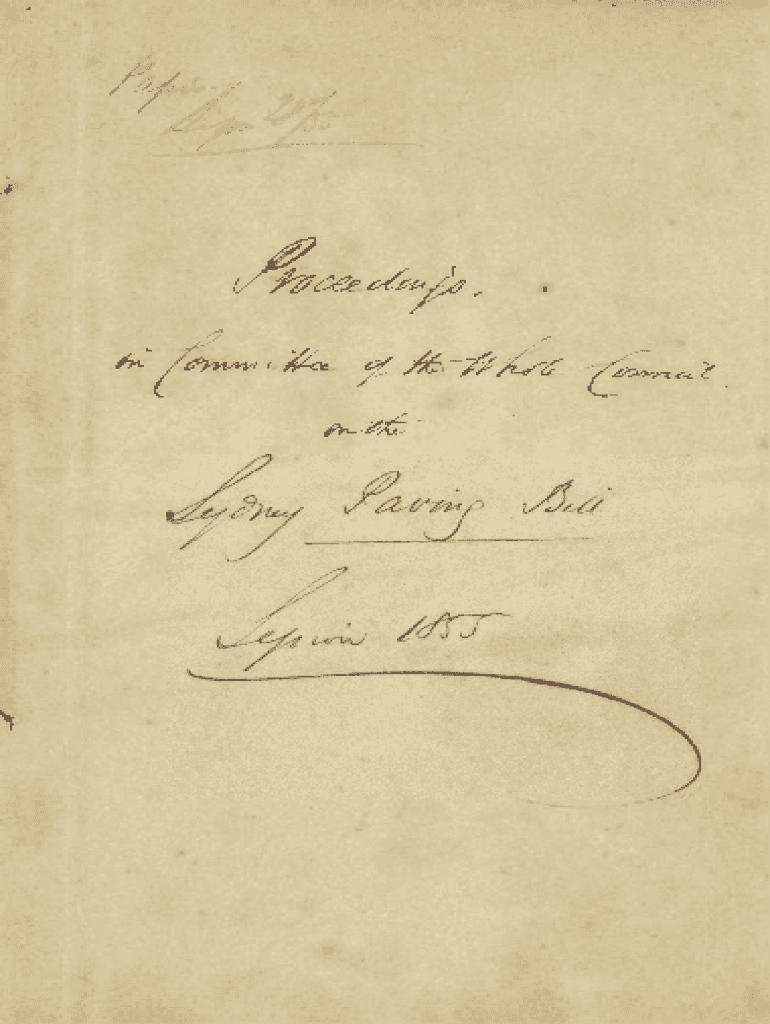 Proceedings.
in Committee of the Whole Council
on the
Sydney Paving Bill
Session 1855